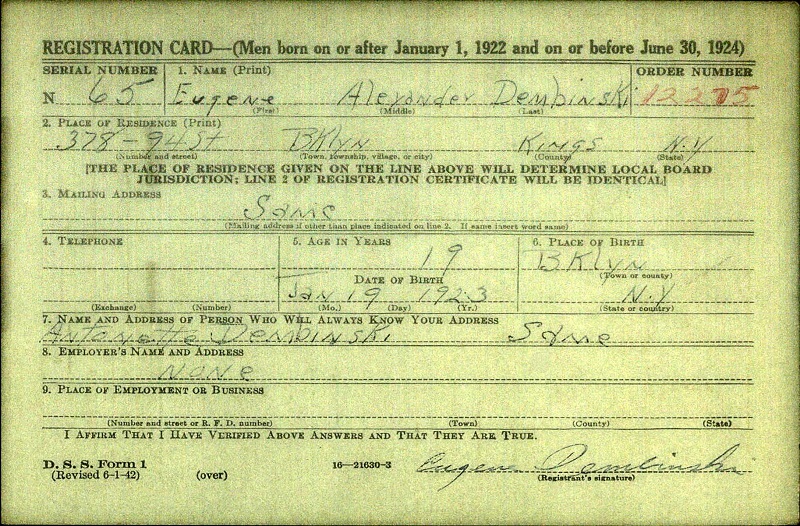 REGISTRATION CARD—(Men born on or after January 1, 1922 and on or before June 30, 1924)
SERIAL NUMBER 1. NAME (Print) ORDER NUMBER
N 65 Eugene Alexander Dembinski 12275
(First) (Middle) (Last)
2. PLACE OF RESIDENCE (Print)
378 - 94 St BKlyn Kings N.Y
(Number and street) (Town, township, village, or city) (County) (State)
[THE PLACE OF RESIDENCE GIVEN ON THE LINE ABOVE WILL DETERMINE LOCAL BOARD
JURISDICTION; LINE 2 OF REGISTRATION CERTIFICATE WILL BE IDENTICAL]
3. MAILING ADDRESS
Same
(Mailing address if other than place indicated on line 2. If same insert word same)
4. TELEPHONE 5. AGE IN YEARS 6. PLACE OF BIRTH
19 BKlyn
(Town or county)
DATE OF BIRTH
Jan 19 1923 N.Y
(Exchange) (Number) (Mo.) (Day) (Yr.) (State or country)
7. NAME AND ADDRESS OF PERSON WHO WILL ALWAYS KNOW YOUR ADDRESS
Antonette Dembinski Same
8. EMPLOYER'S NAME AND ADDRESS
None
9. PLACE OF EMPLOYMENT OR BUSINESS
(Number and street or R. F. D. number) (Town) (County) (State)
I AFFIRM THAT I HAVE VERIFIED ABOVE ANSWERS AND THAT THEY ARE TRUE.
D. S. S. Form 1 16—21630-3 Eugene Dembinski
(Revised 6-1-42) (over) (Registrant's signature)